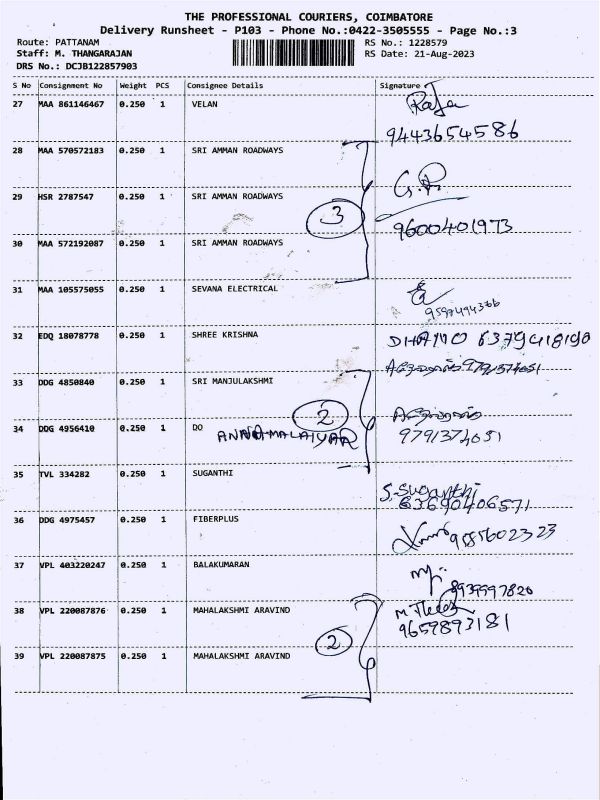 THE PROFESSIONAL COURIERS, COIMBATORE
Delivery Runsheet - P103 - Phone No.:0422-3505555 - Page No.:3
Route: PATTANAM
RS No.: 1228579
Staff: M. THANGARAJAN
RS Date: 21-Aug-2023
DRS No.: DCJB122857903
S No Consignment No Weight PCS Consignee Details Signature
27 MAA 861146467 0.250 1 VELAN Raja
9443654586
28 MAA 570572183 0.250 1 SRI AMMAN ROADWAYS
29 HSR 2787547 0.250 1 SRI AMMAN ROADWAYS
3
9600401973
30 MAA 572192087 0.250 1 SRI AMMAN ROADWAYS
31 MAA 105575055 0.250 1 SEVANA ELECTRICAL
9597494366
32 EDQ 18078778 0.250 1 SHREE KRISHNA
33 DDG 4850840 0.250 1 SRI MANJULAKSHMI
2
34 DDG 4956410 0.250 1 DO
ANNAMALAIYAR 9791374051
35 TVL 334282 0.250 1 SUGANTHI
S.Suganthi
6369406571
36 DDG 4975457 0.250 1 FIBERPLUS
37 VPL 403220247 0.250 1 BALAKUMARAN
8939997820
38 VPL 220087876 0.250 1 MAHALAKSHMI ARAVIND
9659893181
2
39 VPL 220087875 0.250 1 MAHALAKSHMI ARAVIND